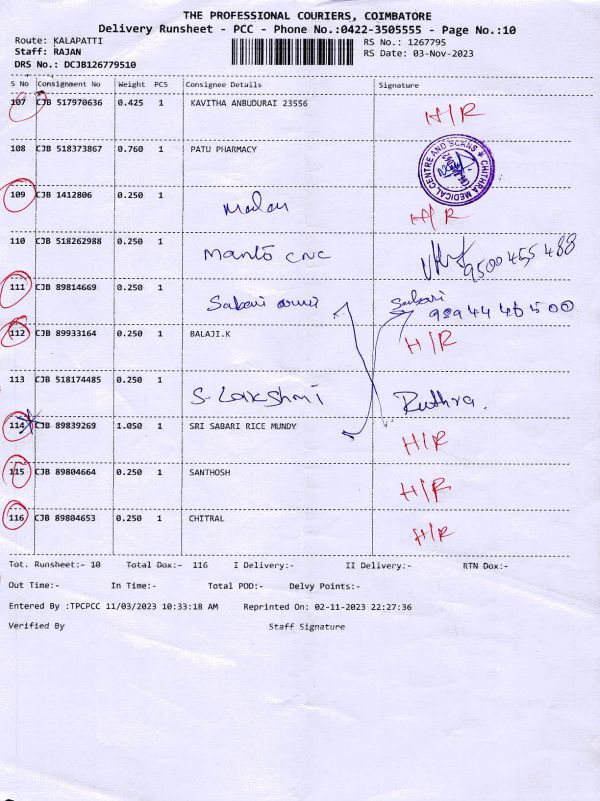 THE PROFESSIONAL COURIERS, COIMBATORE
Delivery Runsheet - PCC - Phone No.:0422-3505555 - Page No.:10
Route: KALAPATTI
RS No.: 1267795
Staff: RAJAN
RS Date: 03-Nov-2023
DRS No.: DCJB126779510
S No Consignment No Weight PCS Consignee Details Signature
107 CJB 517970636 0.425 1 KAVITHA ANBUDURAI 23556 H/R
108 CJB 518373867 0.760 1 PATU PHARMACY CHITHRA MEDICAL CENTRE AND SCANS
109 CJB 1412806 0.250 1 H/R
110 CJB 518262988 0.250 1 CNC 9500455488
111 CJB 89814669 0.250 1 Sabari Sabari
9894446500
112 CJB 89933164 0.250 1 BALAJI.K H/R
113 CJB 518174485 0.250 1 S. Lakshmi Ruthra.
114 CJB 89839269 1.050 1 SRI SABARI RICE MUNDY H/R
115 CJB 89804664 0.250 1 SANTHOSH H/R
116 CJB 89804653 0.250 1 CHITRAL H/R
Tot. Runsheet:- 10 Total Dox:- 116 I Delivery:- II Delivery:- RTN Dox:-
Out Time:- In Time:- Total POD:- Delvy Points:-
Entered By :TPCPCC 11/03/2023 10:33:18 AM Reprinted On: 02-11-2023 22:27:36
Verified By Staff Signature